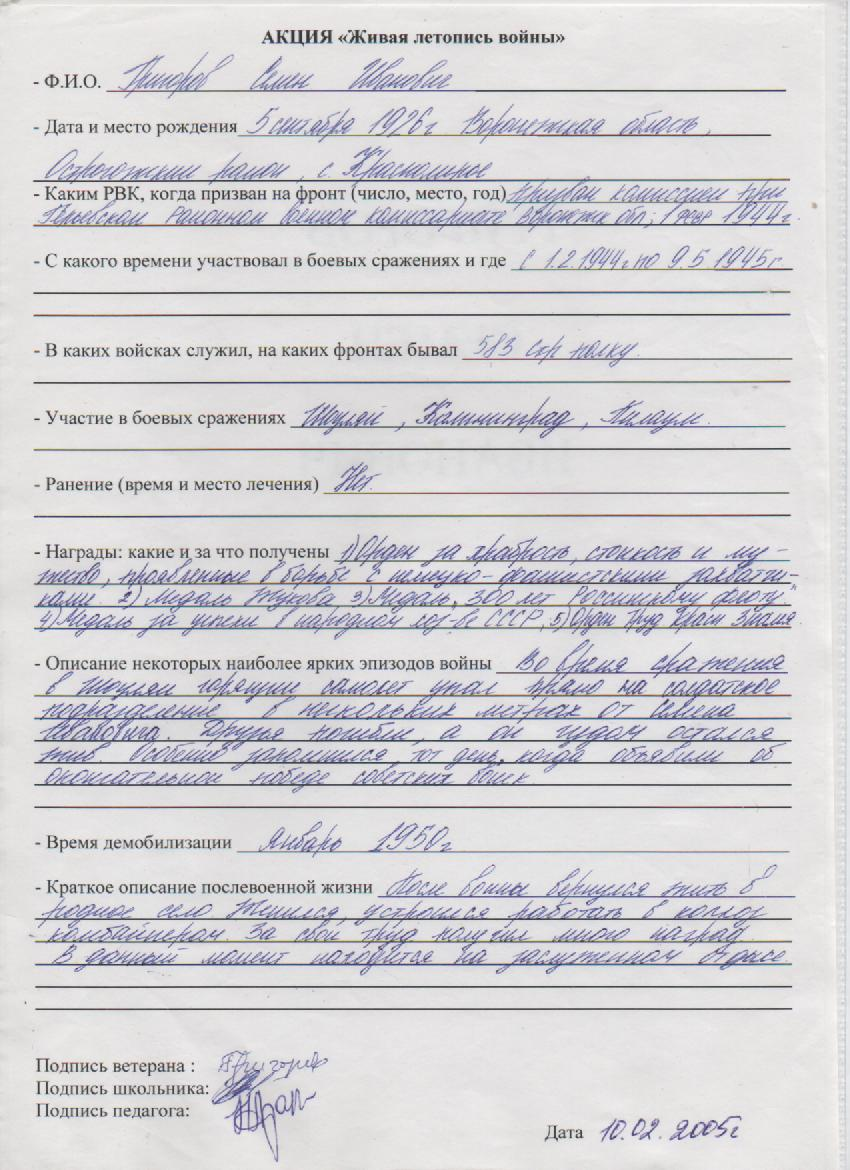 АКЦИЯ «Живая летопись войны»
- Ф.И.О. Григоров Семен Иванович
- Дата и место рождения 5 сентября 1926 г Воронежская область,
Острогожский район, с.
- Каким РВК, когда призван на фронт (число, место, год) призван комиссией при
Районном военном комиссариате обл; 1 1944 г.
- С какого времени участвовал в боевых сражениях и где с 1.2.1944 г по 9.5 1945 г
- В каких войсках служил, на каких фронтах бывал 583 стр полку.
- Участие в боевых сражениях Шауляй, Калининград, Пилаум.
- Ранение (время и место лечения) Нет.
- Награды: какие и за что получены 1) Орден за храбрость, стойкость и му-
жество, проявленные в борьбе с немецко-фашистскими захватчи-
ками. 2) Медаль Жукова, 3) Медаль „300 лет Российскому флоту"
4) Медаль за успехи в народном хоз-ве СССР, 5) Орден Труд Красн Знамя.
- Описание некоторых наиболее ярких эпизодов войны Во время сражения
в Шауляи горящий самолет упал прямо на солдатское
подразделение в нескольких метрах от Семена
Ивановича. Друзья погибли, а он чудом остался
жив. Особенно запомнился тот день, когда объявили об
окончательной победе советских войск.
- Время демобилизации январь 1950 г
- Краткое описание послевоенной жизни После войны вернулся жить в
родное село. Женился, устроился работать в колхоз
- комбайнером. За свой труд получил много наград.
В данный момент находится на заслуженном отдыхе.
Подпись ветерана : Григоров
Подпись школьника:
Подпись педагога:
Дата 10.02.2005 г